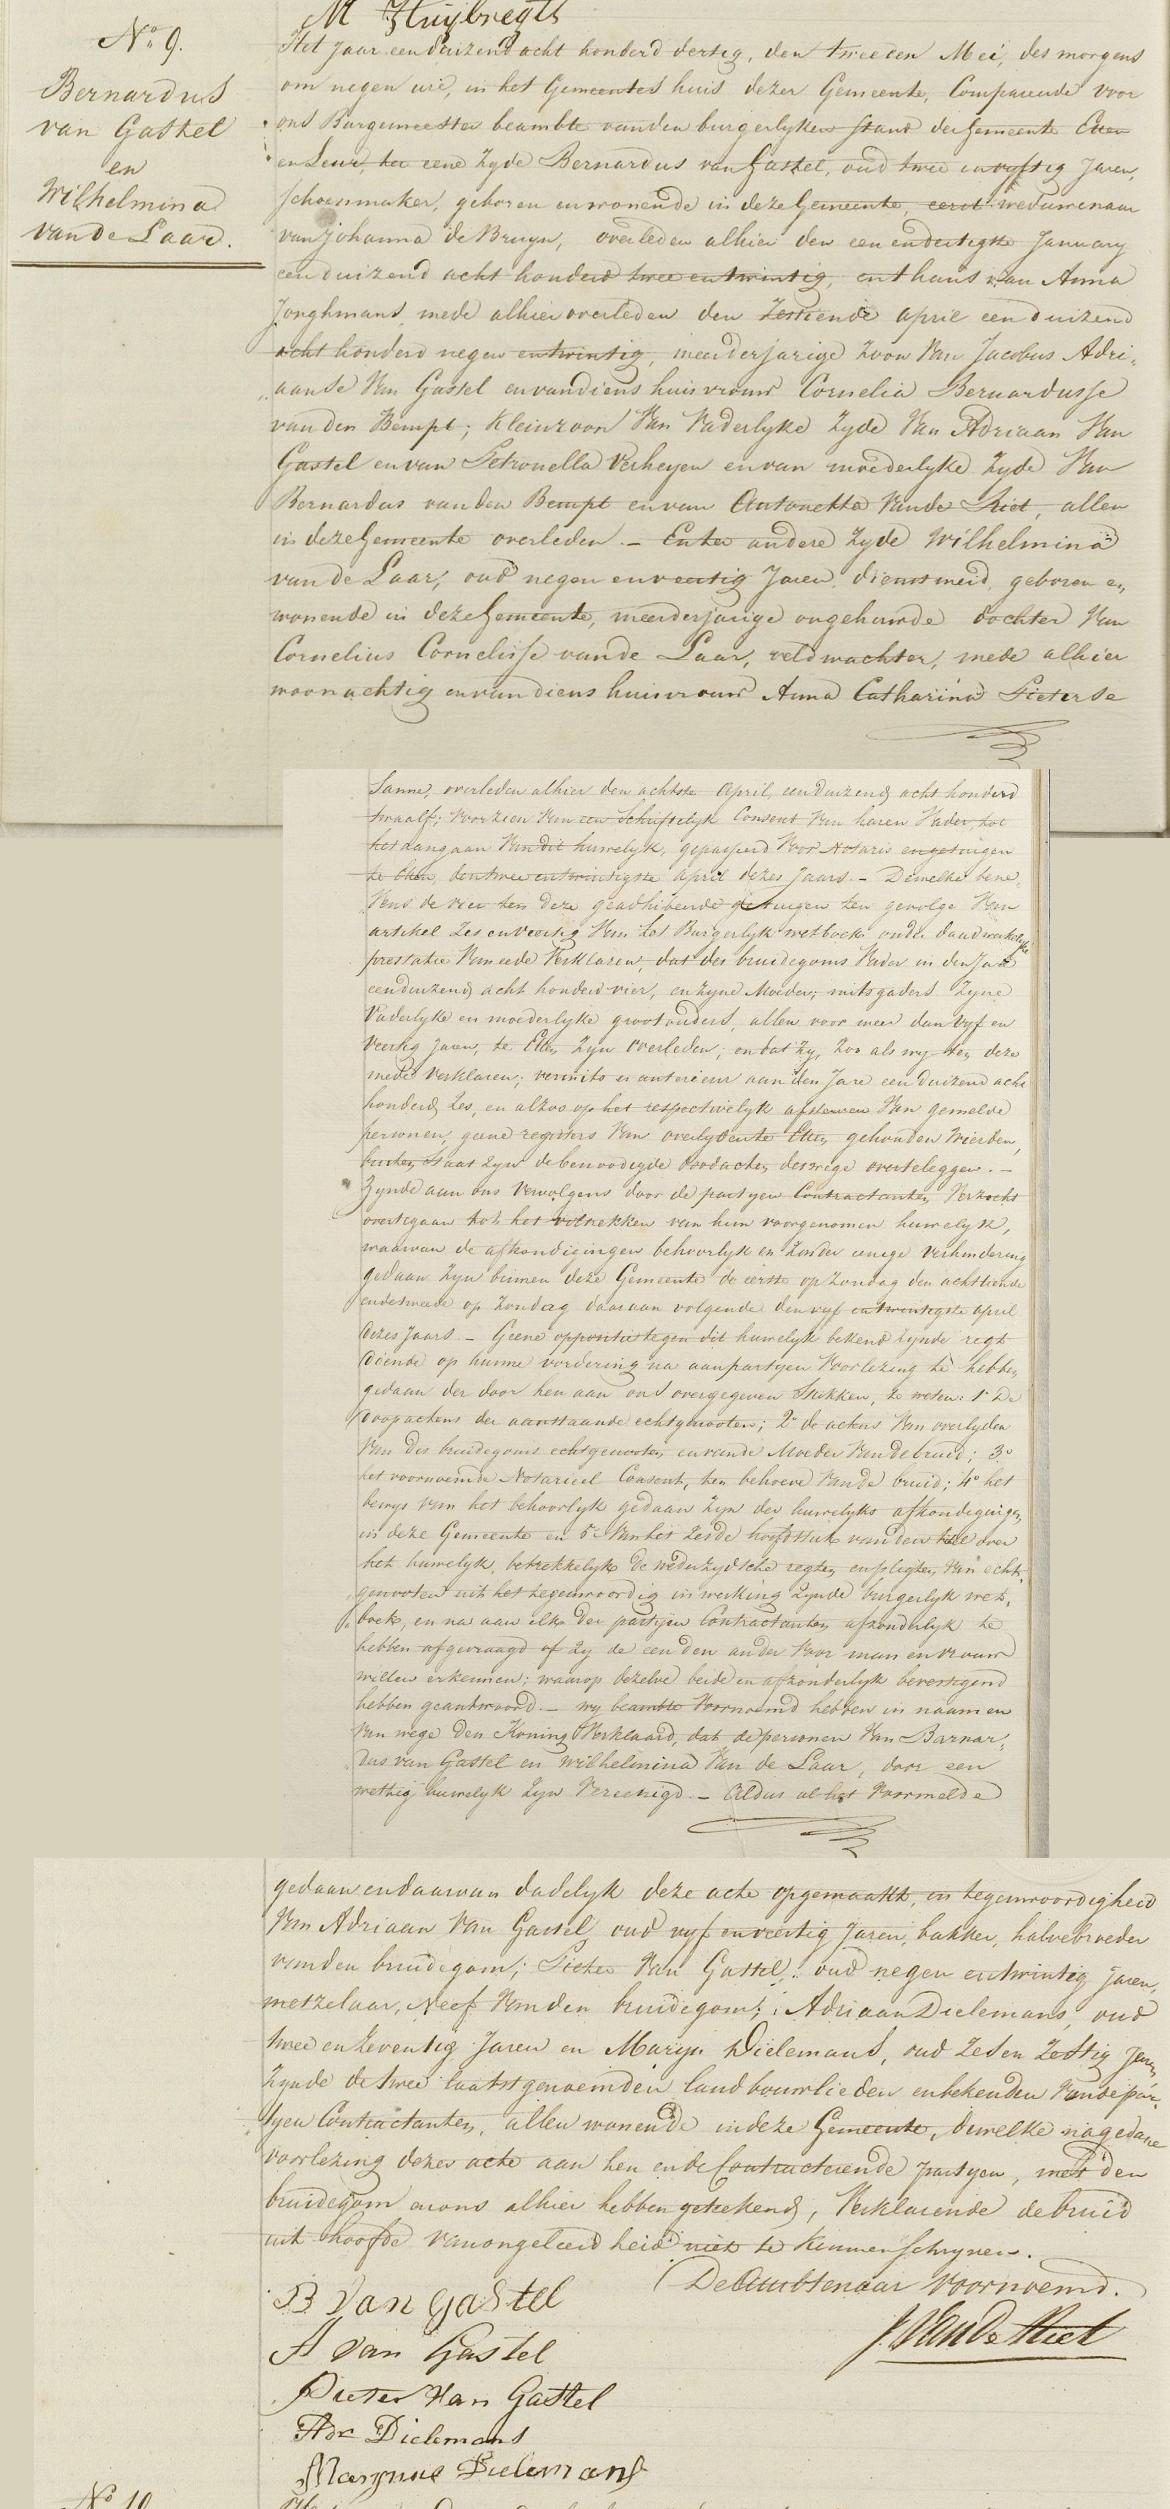 M Huijbregts
No. 9.
Bernardus
van Gastel
en
Wilhelmina
van de Laar.
Het jaar een duizend acht honderd dertig, den tweeden Mei, des morgens
om negen ure, in het Gemeentes huis dezer Gemeente, Compareerde voor
ons Burgemeester beambte van den burgerlyken stand der Gemeente Etten
en Leur, ter eene Zyde Bernardus van Gastel, oud twee en vyftig Jaren,
schoenmaker, geboren en wonende in deze Gemeente, eerst weduwenaar
van Johanna de Bruyn, overleden alhier den een en dertigste January
een duizend acht honderd twee en twintig, en thans van Anna
Jonghmans, mede alhier overleden den Zestiende april een duizend
acht honderd negen en twintig, meerderjarige Zoon Van Jacobus Adri-
aanse Van Gastel en van diens huisvrouw Cornelia Bernardusse
van den Bempt; Kleinzoon Van Vaderlyke Zyde Van Adriaan Van
Gastel en van Petronella Verheyen en van moederlyke Zyde Van
Bernardus van den Bempt en van Antonetta Vande Riet, allen
in deze Gemeente overleden. - En ter andere Zyde Wilhelmina
van de Laar, oud negen en veertig Jaren, dienstmeid, geboren en
wonende in deze Gemeente, meerderjarige ongehuwde dochter Van
Cornelius Cornelisse van de Laar, veldwachter, mede alhier
woonachtig en van diens huisvrouw Anna Catharina Pieterse
Sanne, overleden alhier den achtste April, een duizend acht honderd
twaalf; Voorzien Van een Schriftelyk Consent Van haren Vader, tot
het aangaan Van dit huwelyk, gepasseerd Voor Notaris en getuigen
te Etten, den twee en twintigste april dezes Jaars. - Dewelke bene-
Vens de vier ten deze geadhibeerde getuigen ten gevolge Van
artikel Zes en veertig Van het Burgerlyk wetboek onder daadwerkelyke
prestatie Van eede Verklaren, dat des bruidegoms Vader in den Jare
een duizend acht honderd vier, en zyne Moeder, mitsgaders Zyne
Vaderlyke en moederlyke grootouders, allen voor meer dan Vyf en
Veertig Jaren, te Etten Zyn Overleden; en dat Zy, Zoo als wy ten deze
mede Verklaren; vermits er anterieur aan den Jare een duizend acht
honderd Zes, en alzoo op het respectivelyk afsterven Van gemelde
personen, geene registers Van overlyden te Etten gehouden Wierden,
buiten Staat Zyn de benoodigde doodacten deswege overteleggen. -
Zynde aan ons Vervolgens door de partyen Contractanten Verzocht
overtegaan tot het voltrekken van hun voorgenomen huwelyk,
waarvan de afkondigingen behoorlyk en Zonder eenige Verhindering
gedaan Zyn binnen deze Gemeente de eerste op Zondag den achttiende
en de tweede op Zondag daaraan volgende den vyf en twintigste april
dezes Jaars. - Geene oppositie tegen dit huwelyk bekend Zynde regt
doende op hunne vordering na aan partyen Voorlezing te hebben
gedaan der door hen aan ons overgegeven Stukken, te weten: 1° De
doopactens der aanstaande echtgenooten; 2° de actens Van overlyden
Van des bruidegoms echtgenooten en van de Moeder Van de bruid; 3°
het voornoemde Notarieel Consent, ten behoeve Van de bruid; 4° het
bewys van het behoorlyk gedaan Zyn der huwelyks afkondigingen
in deze Gemeente en 5° Van het Zesde hoofdstuk van den titel over
het huwelyk, betrekkelyk de wederzydsche regten en pligten Van echt-
genooten uit het tegenwoordig in werking Zynde burgerlyk wet-
boek, en na aan elk der partyen Contractanten afzonderlyk te
hebben afgevraagd of Zy de een den ander Voor man en vrouw
willen erkennen; waarop dezelve beide en afzonderlyk bevestigend
hebben geantwoord. - wy beambte Voornoemd hebben in naam en
Van wege den Koning Verklaard, dat de personen Van Barnar-
dus van Gastel en Wilhelmina Van de Laar, door een
wettig huwelyk Zyn Vereenigd. - Aldus al het Voormelde
gedaan en daarvan dadelyk deze acte opgemaakt, in tegenwoordigheid
Van Adriaan Van Gastel, oud vyf en veertig Jaren, bakker, halvebroeder
van den bruidegom; Pieter Van Gastel, oud negen en twintig Jaren,
metzelaar, Neef Van den bruidegom; Adriaan Dielemans, oud
twee en Zeventig Jaren en Maryn Dielemans, oud Zes en Zestig Jaren,
Zynde de twee laatstgenoemden landbouwlieden en bekenden Van de par-
tyen Contractanten, allen wonende in deze Gemeente, dewelke na gedane
voorlezing dezer acte aan hen en de Contracterende partyen, met den
bruidegom en ons alhier hebben getekend, Verklarende de bruid
uit hoofde van ongeleerdheid niet te Kunnen schryven.
De Ambtenaar Voornoemd.
J. Van de Riet
B Van Gastel
A van Gastel
Pieter Van Gastel
Adr Dielemans
Marynus Dielemans
No 10